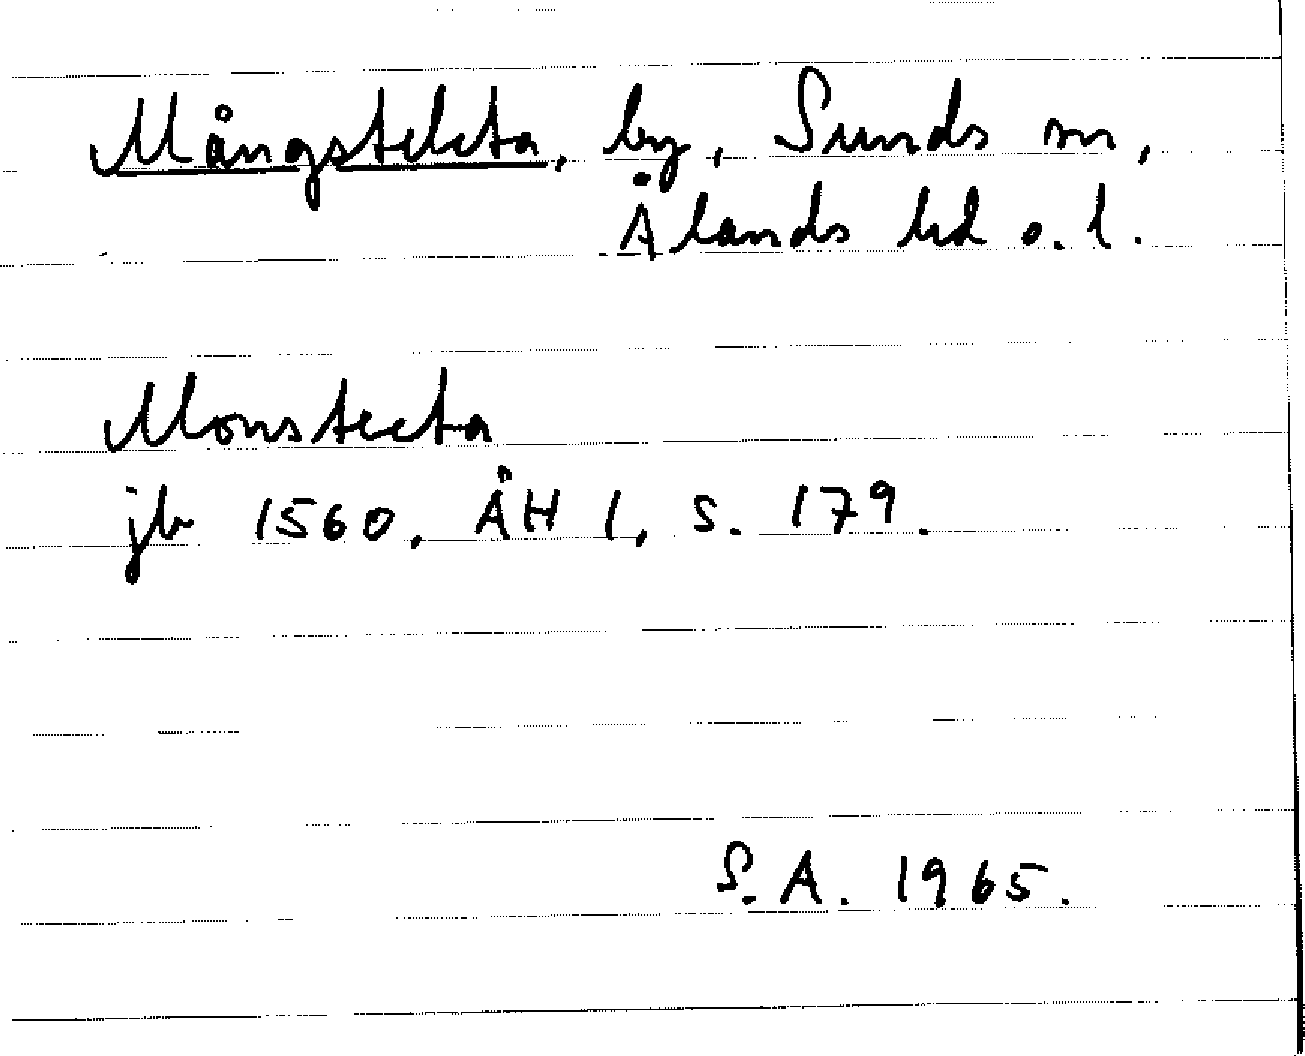 Mångstekta, by, Sunds sn,
Ålands hd o. l.
Monstecta
jb 1560, ÅH 1, s. 179.
S.A. 1965.